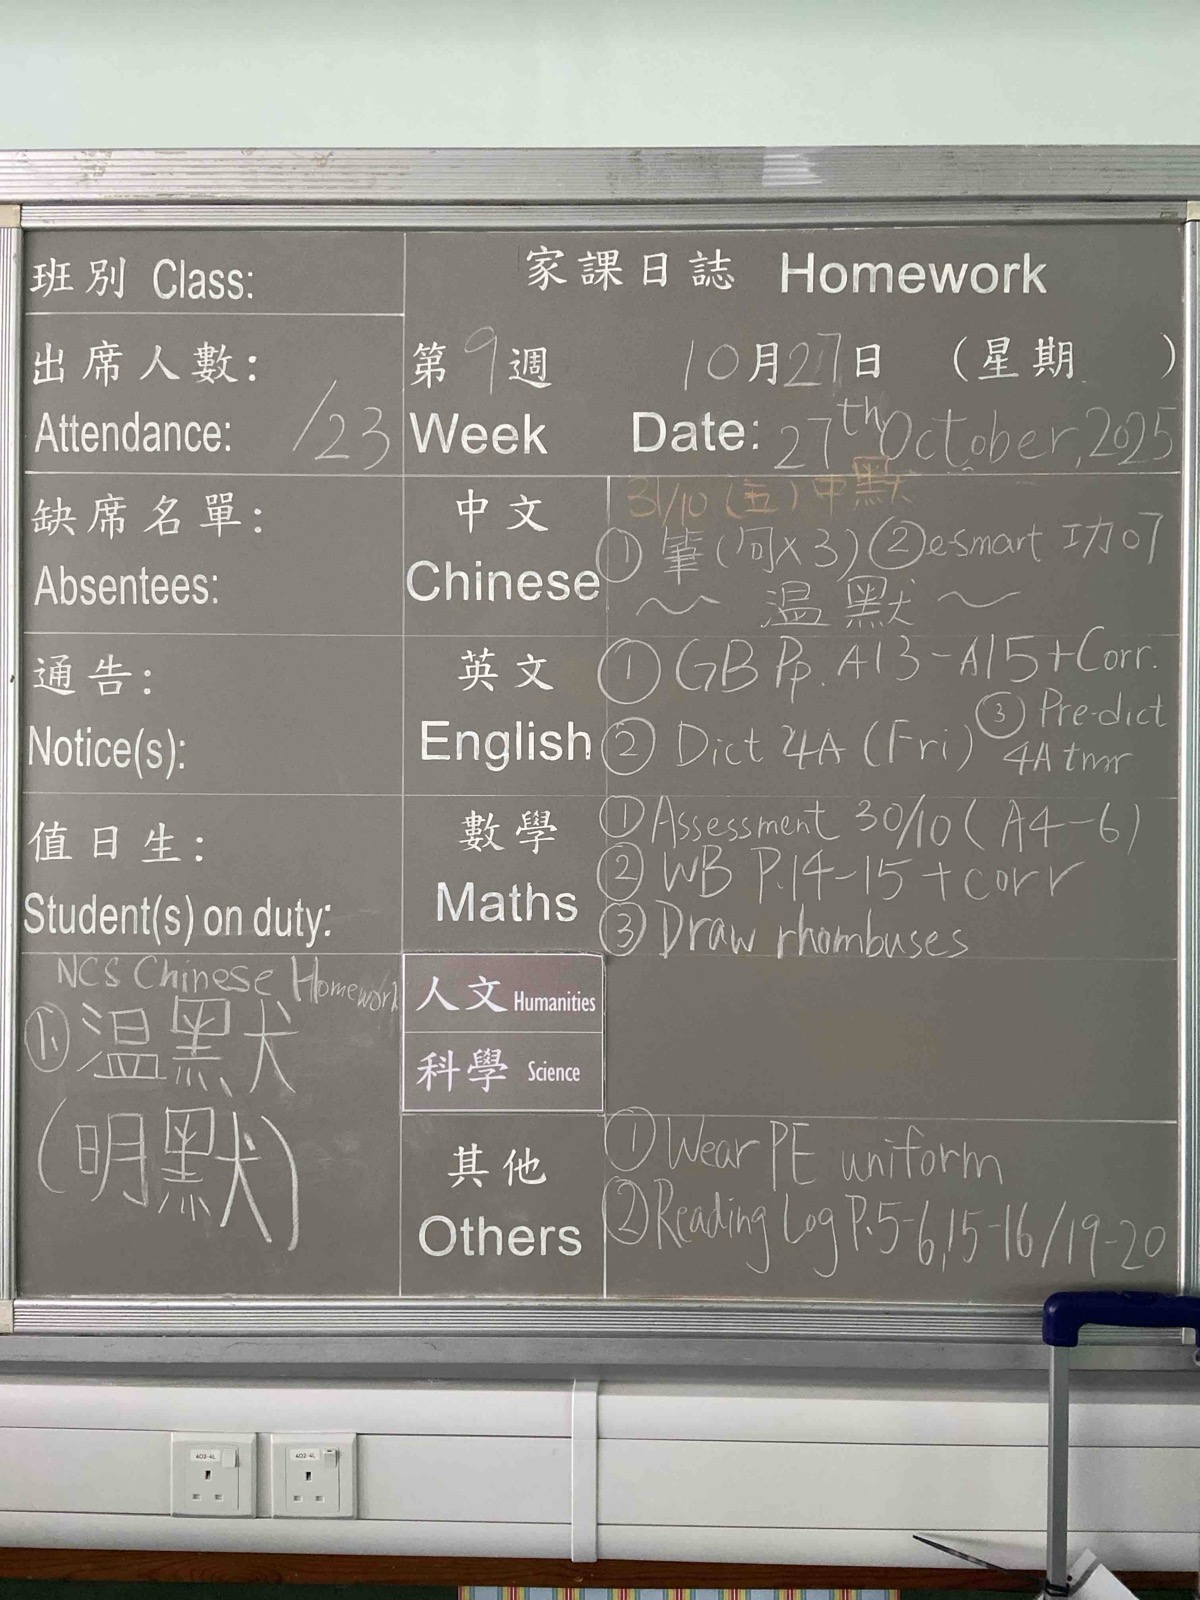 班別 Class:
家課日誌 Homework
出席人數:
Attendance: /23
第9週
Week
10月27日 (星期 )
Date: 27th October, 2025
缺席名單:
Absentees:
中文
Chinese
31/10 (五) 中默
① 筆(句x3) ② e-smart 功
~ 温默 ~
通告:
Notice(s):
英文
English
① GB Pp. A13-A15+Corr.
② Dict 4A (Fri)
③ Pre-dict
4A tmr
值日生:
Student(s) on duty:
數學
Maths
① Assessment 30/10 (A4-6)
② WB P.14-15 + corr
③ Draw rhombuses
NCS Chinese Homework
①. 温默
(明默)
人文 Humanities
科學 Science
其他
Others
① Wear PE uniform
② Reading Log P.5-6,15-16/19-20
402-4L
402-4L